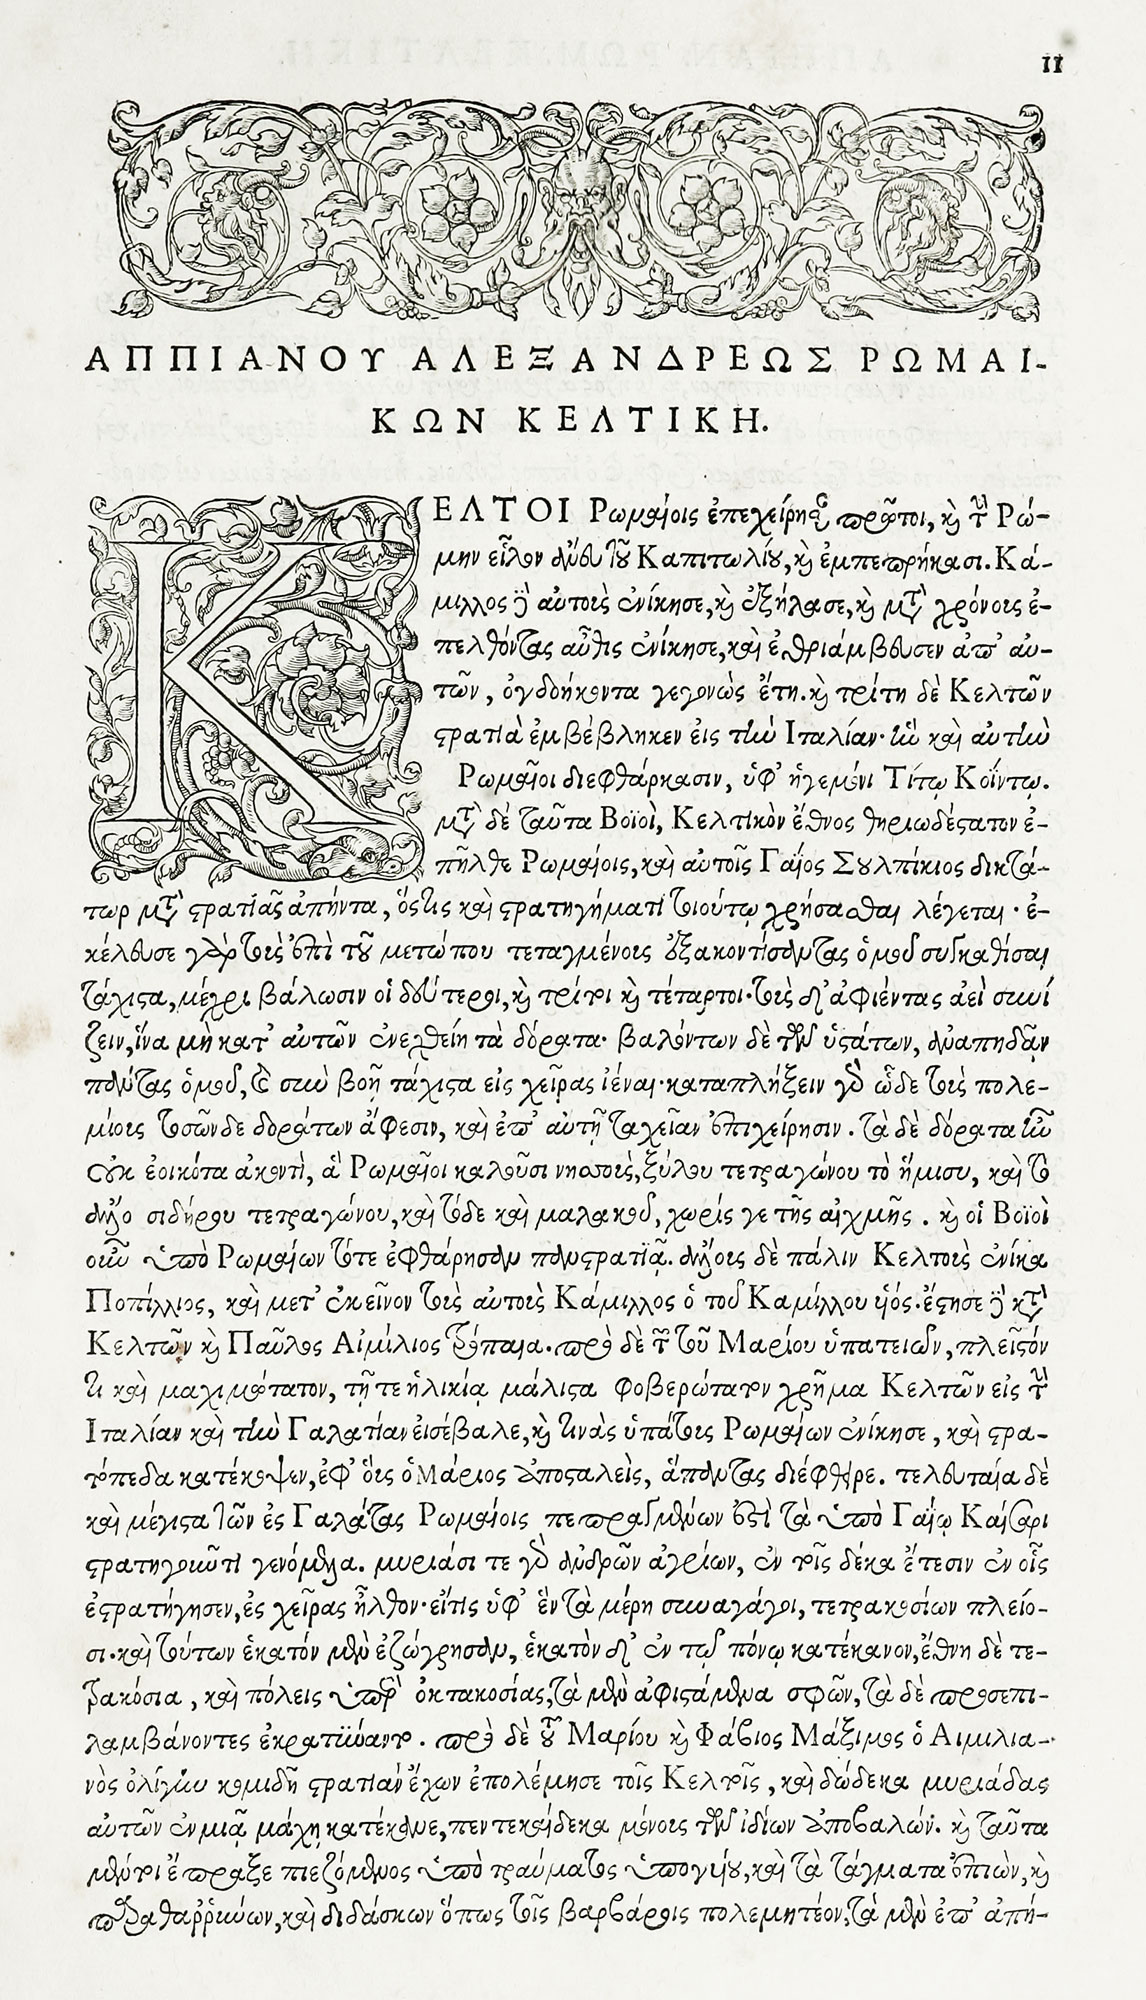 11
ΑΠΠΙΑΝΟΥ ΑΛΕΞΑΝΔΡΕΩΣ ΡΩΜΑΙ-
ΚΩΝ ΚΕΛΤΙΚΗ.
ΚΕΛΤΟΙ Ρωμαίοις ἐπεχείρησαν πρῶτοι, καὶ τὴν Ρώ-
μην εἷλον ἄνευ τοῦ Καπιτωλίου, καὶ ἐμπεπρήκασι. Κά-
μιλλος δὲ αὐτοὺς ἐνίκησε, καὶ ἐξήλασε, καὶ μετὰ χρόνους ἐ-
πελθόντας αὖθις ἐνίκησε, καὶ ἐθριάμβευσεν ἀπ' αὐ-
τῶν, ὀγδοήκοντα γεγονὼς ἔτη. καὶ τρίτη δὲ Κελτῶν
στρατιὰ ἐμβέβληκεν εἰς τὴν Ἰταλίαν· ἣν καὶ αὐτὴν
Ρωμαῖοι διεφθάρκασιν, ὑφ' ἡγεμόνι Τίτῳ Κοΐντῳ.
μετὰ δὲ ταῦτα Βοϊοὶ, Κελτικὸν ἔθνος θηριωδέστατον ἐ-
πῆλθε Ρωμαίοις, καὶ αὐτοῖς Γαῖος Σουλπίκιος δικτά-
τωρ μετὰ στρατιᾶς ἀπήντα, ὅστις καὶ στρατηγήματι τοιούτῳ χρήσασθαι λέγεται· ἐ-
κέλευσε γὰρ τοὺς ἐπὶ τοῦ μετώπου τεταγμένους ἐξακοντίσαντας ὁμοῦ συγκαθίσαι
τάχιστα, μέχρι βάλωσιν οἱ δεύτεροι, καὶ τρίτοι καὶ τέταρτοι· τοὺς δ' ἀφιέντας ἀεὶ συνί
ζειν, ἵνα μὴ κατ' αὐτῶν ἐνεχθείη τὰ δόρατα· βαλόντων δὲ τῶν ὑστάτων, ἀναπηδᾶν
πάντας ὁμοῦ, καὶ σὺν βοῇ τάχιστα εἰς χεῖρας ἰέναι· καταπλήξειν γὰρ ὧδε τοὺς πολε-
μίους τοσῶνδε δοράτων ἄφεσιν, καὶ ἐπ' αὐτῇ ταχεῖαν ἐπιχείρησιν. τὰ δὲ δόρατα ἦν
οὐκ ἐοικότα ἀκοντὶ, ἃ Ρωμαῖοι καλοῦσι ὑησσοὺς, ξύλου τετραγώνου τὸ ἥμισυ, καὶ τὸ
ἄλλο σιδήρου τετραγώνου, καὶ τόδε καὶ μαλακοῦ, χωρίς γε τῆς αἰχμῆς. καὶ οἱ Βοϊοὶ
οὖν ὑπὸ Ρωμαίων τότε ἐφθάρησαν πανστρατιᾷ. ἄλλους δὲ πάλιν Κελτοὺς ἐνίκα
Ποπίλλιος, καὶ μετ' ἐκεῖνον τοὺς αὐτοὺς Κάμιλλος ὁ τοῦ Καμίλλου υἱός. ἔστησε δὲ κατὰ
Κελτῶν καὶ Παῦλος Αἰμίλιος τρόπαια. πρὸ δὲ τῶν τοῦ Μαρίου ὑπατειῶν, πλεῖστόν
τι καὶ μαχιμώτατον, τῇ τε ἡλικίᾳ μάλιστα φοβερώτατον χρῆμα Κελτῶν εἰς τὴν
Ἰταλίαν καὶ τὴν Γαλατίαν εἰσέβαλε, καὶ τινὰς ὑπάτους Ρωμαίων ἐνίκησε, καὶ στρα-
τόπεδα κατέκοψεν, ἐφ' οὓς ὁ Μάριος ἀποσταλεὶς, ἅπαντας διέφθειρε. τελευταῖα δὲ
καὶ μέγιστα τῶν ἐς Γαλάτας Ρωμαίοις πεπραγμένων ἐστὶ τὰ ὑπὸ Γαΐῳ Καίσαρι
στρατηγοῦντι γενόμενα. μυριάσι τε γὰρ ἀνδρῶν ἀγρίων, ἐν τοῖς δέκα ἔτεσιν ἐν οἷς
ἐστρατήγησεν, ἐς χεῖρας ἦλθον· εἴτις ὑφ' ἓν τὰ μέρη συναγάγοι, τετρακοσίων πλείο-
σι. καὶ τούτων ἑκατόν μὲν ἐζώγρησαν, ἑκατὸν δ' ἐν τῷ πόνῳ κατέκανον, ἔθνη δὲ τε-
τρακόσια, καὶ πόλεις ὑπὲρ ὀκτακοσίας, τὰ μὲν ἀφιστάμενα σφῶν, τὰ δὲ προσεπι-
λαμβάνοντες ἐκρατύναντο. πρὸ δὲ τοῦ Μαρίου καὶ Φάβιος Μάξιμος ὁ Αἰμιλια-
νὸς ὀλίγην κομιδῇ στρατιὰν ἔχων ἐπολέμησε τοῖς Κελτοῖς, καὶ δώδεκα μυριάδας
αὐτῶν ἐν μιᾷ μάχῃ κατέκανε, πεντεκαίδεκα μόνους τῶν ἰδίων ἀποβαλών. καὶ ταῦτα
μέντοι ἔπραξε πιεζόμενος ὑπὸ τραύματος ὑπογύου, καὶ τὰ τάγματα ἐπιὼν, καὶ
παραθαρρύνων, καὶ διδάσκων ὅπως τοῖς βαρβάροις πολεμητέον, τὰ μὲν ἐπ' ἀπή-